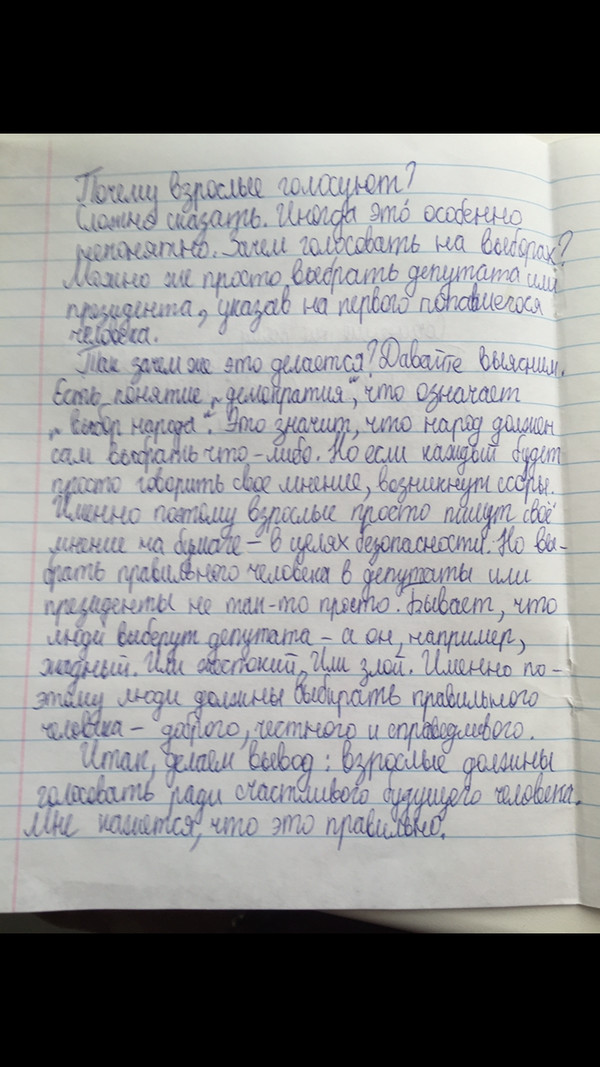 Почему взрослые голосуют?
Сложно сказать. Иногда это особенно
непонятно. Зачем голосовать на выборах?
Можно же просто выбрать депутата или
президента, указав на первого попавшегося
человека.
Так зачем же это делается? Давайте выясним.
Есть понятие „демократия“, что означает
„выбор народа“. Это значит, что народ должен
сам выбрать что-либо. Но если каждый будет
просто говорить свое мнение, возникнут ссоры.
Именно поэтому взрослые просто пишут своё
мнение на бумаге – в целях безопасности. Но вы-
брать правильного человека в депутаты или
президенты не так-то просто. Бывает, что
люди выберут депутата – а он, например,
жадный. Или жестокий. Или злой. Именно по-
этому люди должны выбирать правильного
человека – доброго, честного и справедливого.
Итак, делаем вывод: взрослые должны
голосовать ради счастливого будущего человека.
Мне кажется, что это правильно.